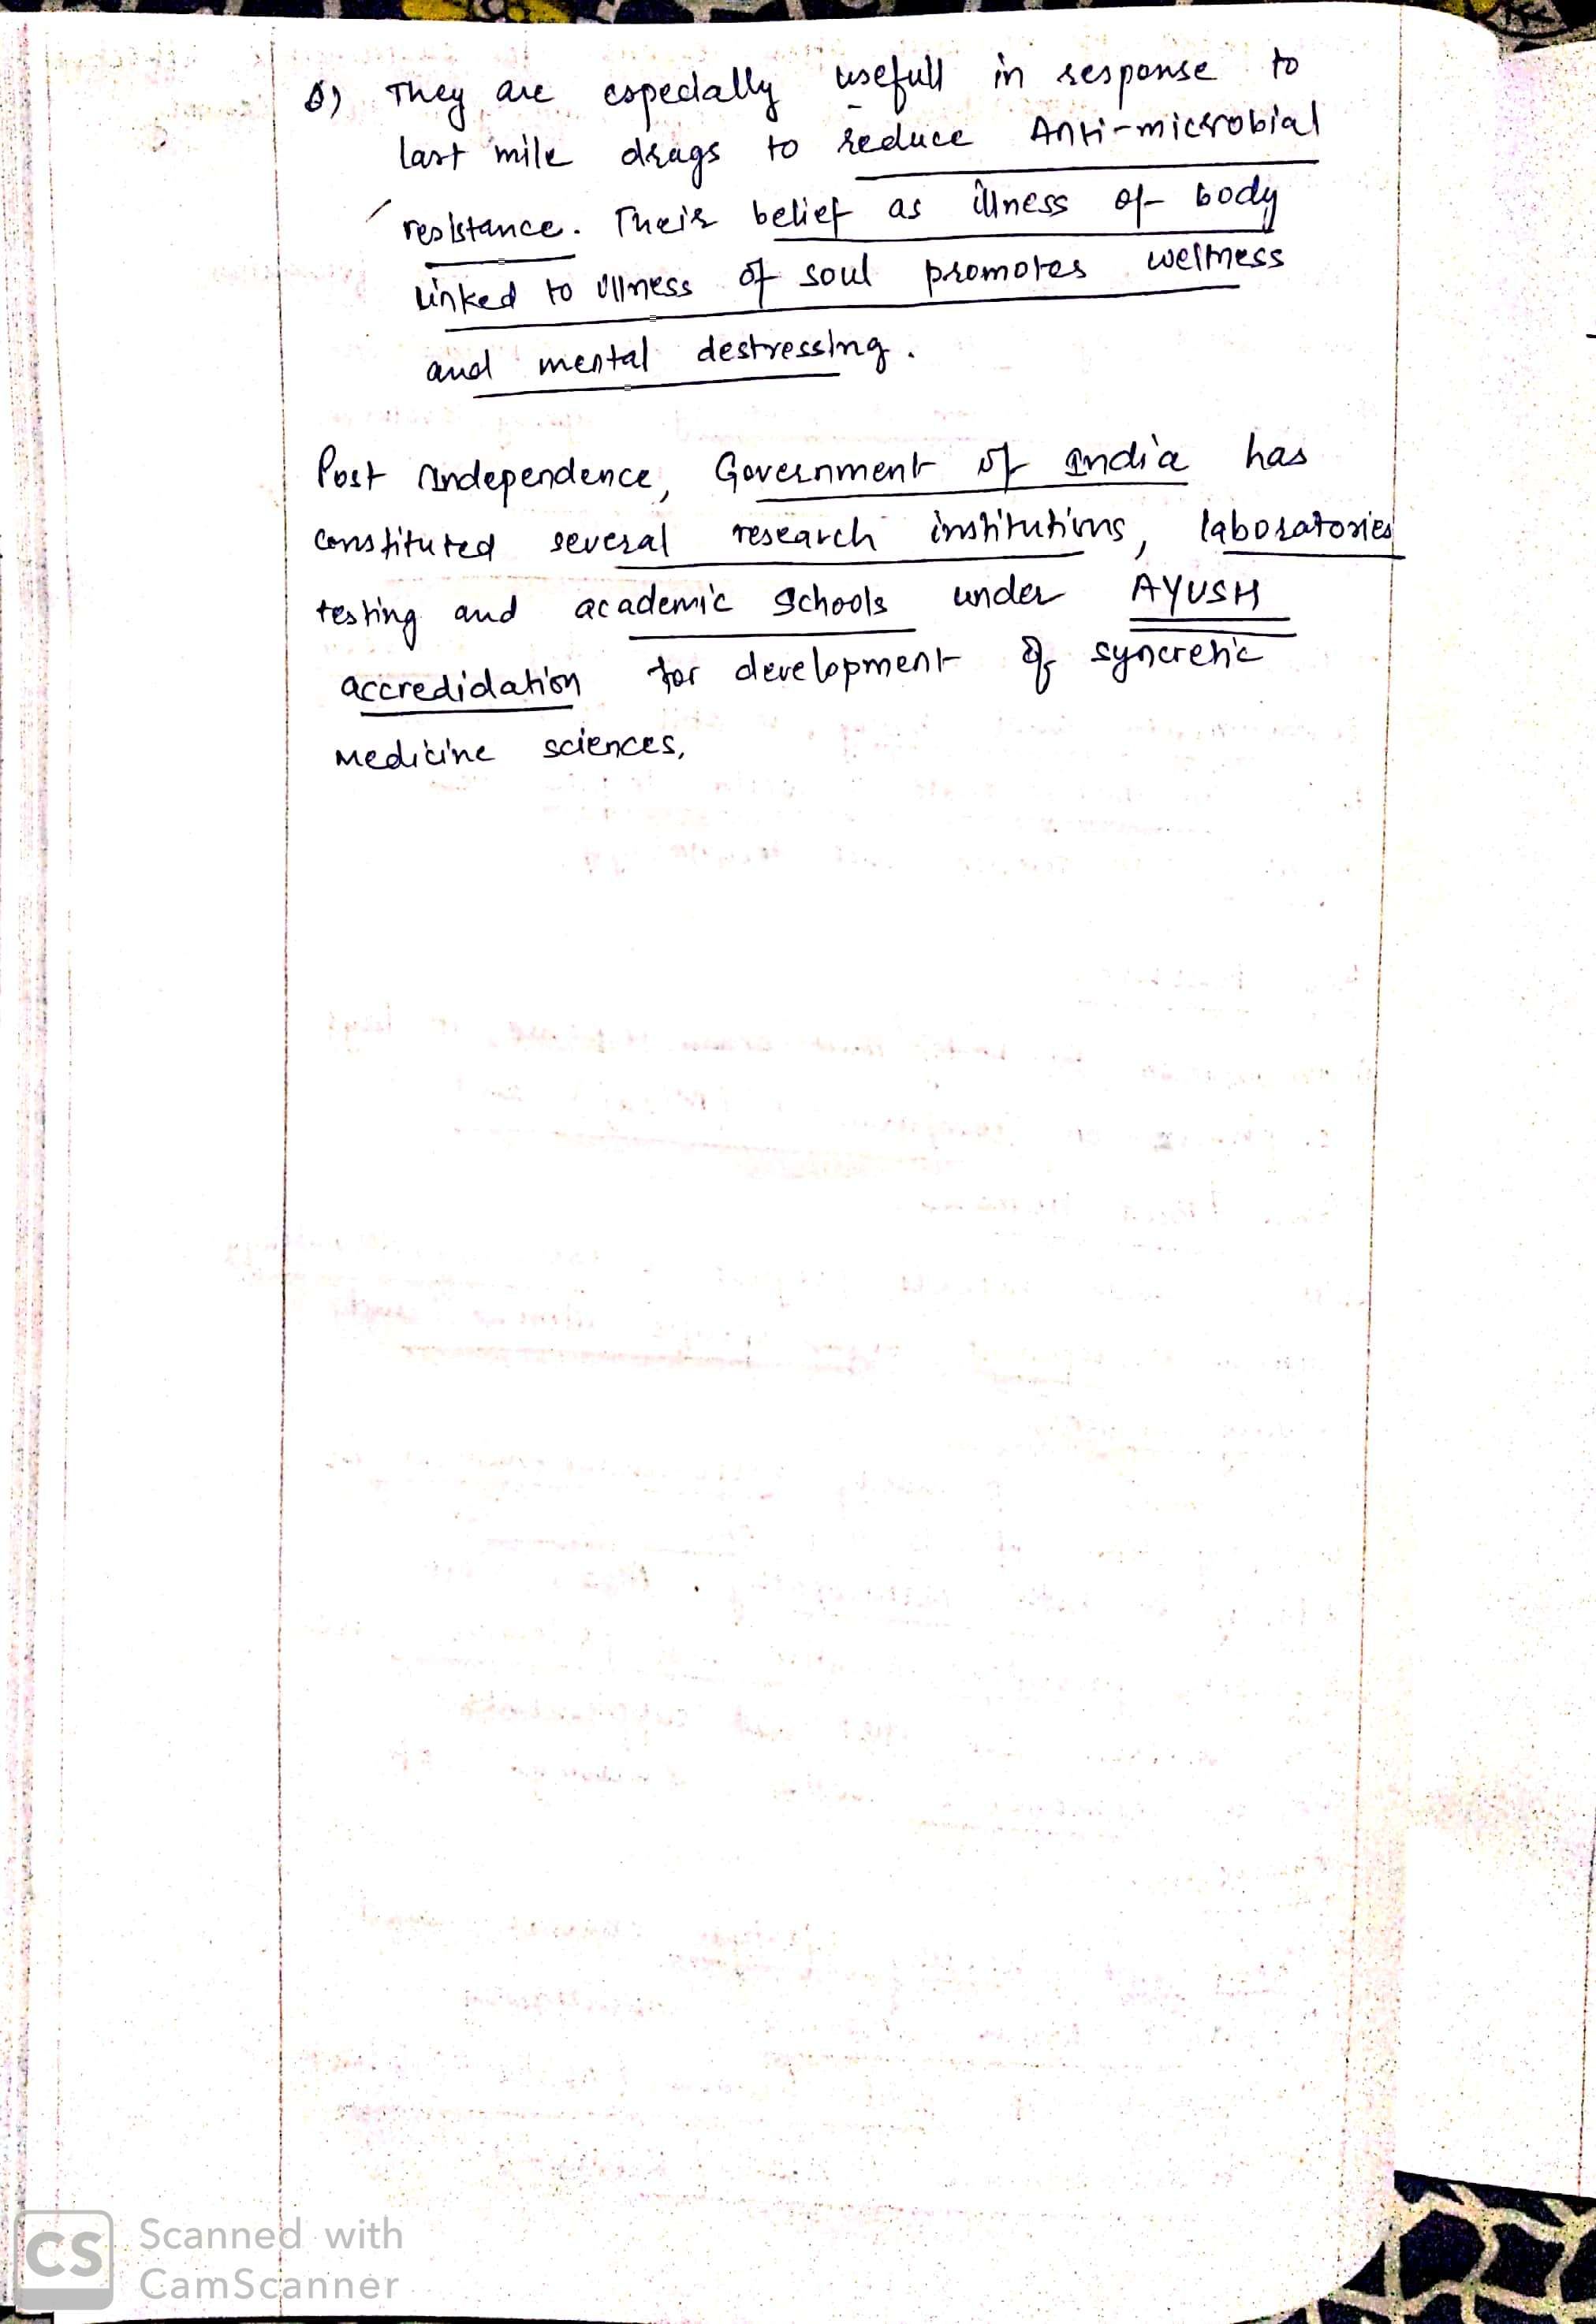 They are especially usefull in response to
last mile drugs to reduce Anti-microbial
resistance. Their belief as illness of body
linked to illness of soul promotes wellness
and mental destressing.
Post Independence, Government of India has
constituted several research institutions, laboratories
testing and academic schools under AYUSH
accredidation for development of syncretic
medicine sciences,
CS Scanned with
CamScanner